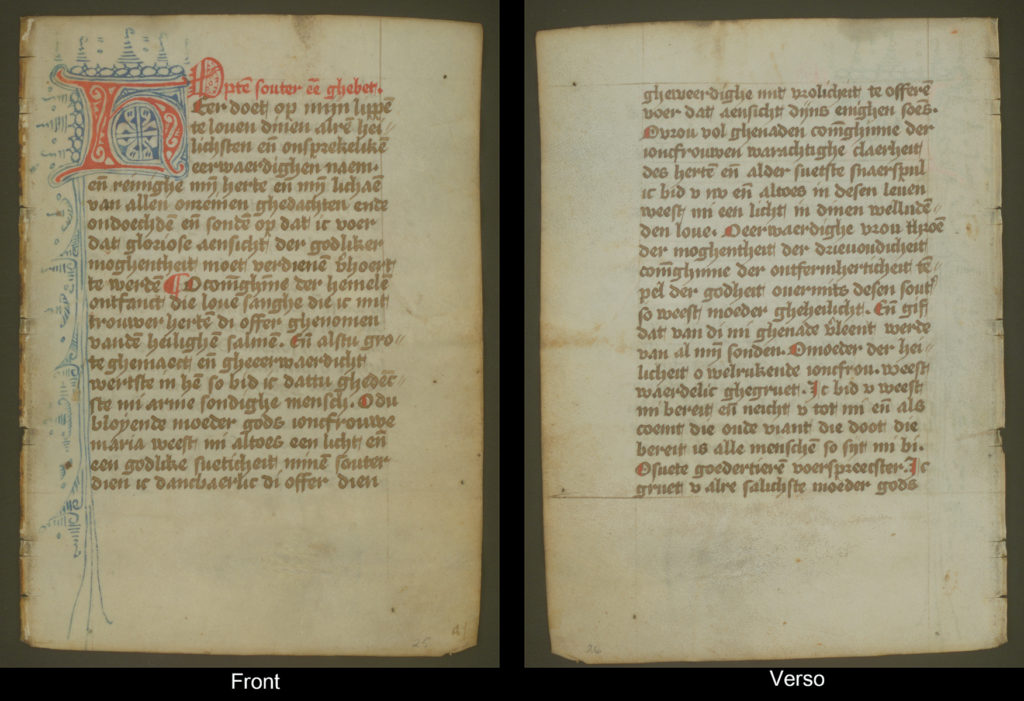 Opten souter een ghebet.
Heer doet op mijn lippē
te louen dinen alrē hei
lichsten eñ onsprekelikē
eerwaerdighen naem.
eñ reinighe mij herte eñ mij lichaē
van allen omeinen ghedachten ende
ondoechdē eñ sondē op dat ic voer
dat gloriose aensicht der godliker
moghentheit moet verdienē v̄hoert
te werdē O coninghinne der hemelē
ontfanct die loue sanghe die ic mit
trouwer hertē di offer ghenomen
vandē heilighē salmē. Eñ alstu gro
te ghemaect eñ gheeerwaerdicht
wertste in hē so bid ic dattu ghedēc
ste mi arme sondighe mensch. O du
bloyende moeder gods ioncfrouwe
maria weest mi altoes een licht eñ
een godlike sueticheit minē souter
dien ic dancbaerlic di offer dien
gheweerdighe mit vrolicheit te offerē
voer dat aensicht dijns enighen soēs.
O vrou vol ghenaden coninghinne der
ioncfrouwen warachtighe claerheit
des hertē eñ alder suetste snaerspul
ic bid v nv eñ altoes in desen leuen
weest mi een licht in dinen wellude
den loue. O eerwaerdighe vrou throē
der moghentheit der drieuoudicheit
coninghinne der ontfermherticheit tē
pel der godheit ouermits desen sout
so weest moeder gheheilicht. Eñ gif
dat van di mi ghenade v̄leent werde
van al mij sonden. O moeder der hei
licheit o welrukende ioncfrou. weest
waerdelic ghegruet. Ic bid v weest
mi bereit eñ neicht v tot mi eñ als
coemt die oude viant die doot die
bereit is alle menschē so sijt mi bi.
O suete goedertierē voerspreecster. Ic
gruet v alre salichste moeder gods
25
26
Front
Verso